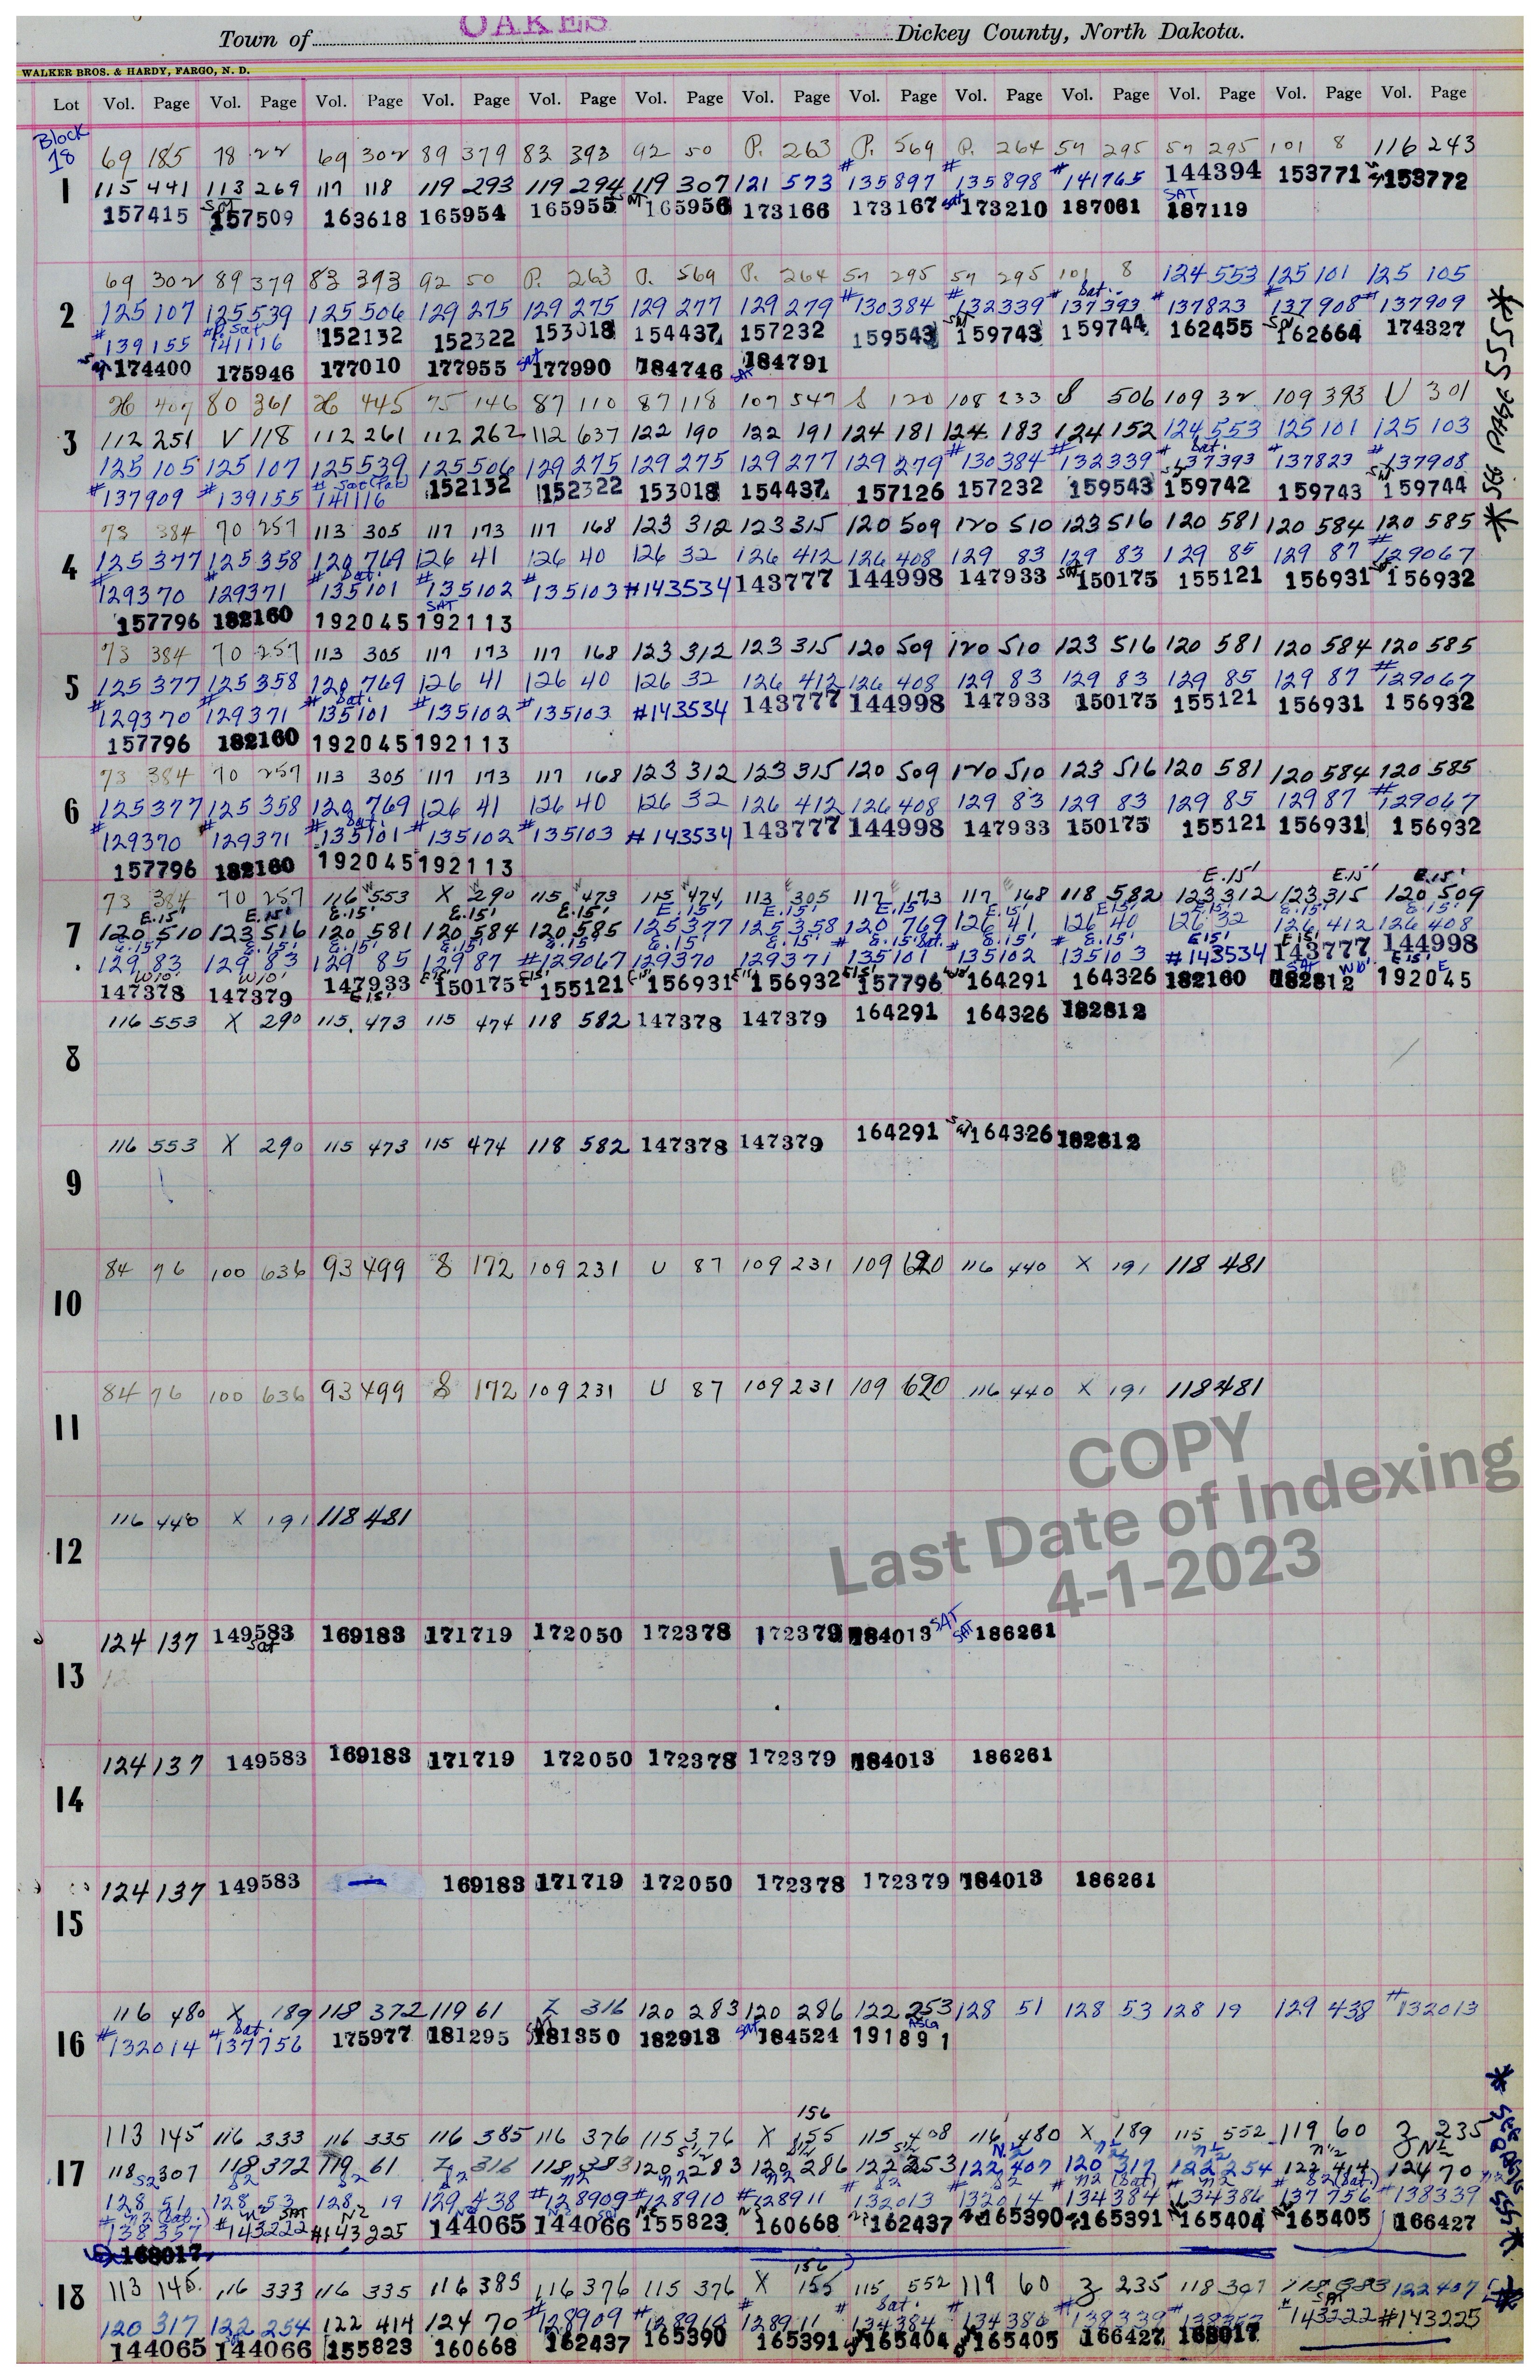 OAKES
Town of Dickey County, North Dakota.
WALKER BROS. & HARDY, FARGO, N. D.
Lot Vol. Page Vol. Page Vol. Page Vol. Page Vol. Page Vol. Page Vol. Page Vol. Page Vol. Page Vol. Page Vol. Page Vol. Page Vol. Page
Block 18
69 185 78 22 69 302 89 379 83 393 92 50 P. 263 P. 569 P. 264 57 295 57 295 101 8 116 243
1 115 441 113 269 117 118 119 293 119 294 119 307 121 573 #135897 #135898 #141765 144394 153771 153772
157415 157509 163618 165954 165955 165956 173166 173167 sat 173210 187061 SAT 187119
69 302 89 379 83 393 92 50 P. 263 P. 569 P. 264 57 295 57 295 101 8 124 553 125 101 125 105
2 125 107 125 539 125 506 129 275 129 275 129 277 129 279 #130384 #132339 #137393 Sat. #137823 #137908 #137909
#139155 #141116 152132 152322 153018 154437 157232 159543 159743 159744 162455 162664 174327
174400 175946 177010 177955 sat 177990 184746 SAT 184791
* See Page 555 *
H 407 80 361 H 445 75 146 87 110 87 118 107 547 S 120 108 233 S 506 109 32 109 393 U 301
3 112 251 V 118 112 261 112 262 112 637 122 190 122 191 124 181 124 183 124 152 124 553 125 101 125 103
125 105 125 107 125 539 125 506 129 275 129 275 129 277 129 279 #130384 #132339 137393 Sat. #137823 #137908
#137909 #139155 141116 152132 152322 153018 154437 157126 157232 159543 159742 159743 159744
73 384 70 257 113 305 117 173 117 168 123 312 123 315 120 509 120 510 123 516 120 581 120 584 120 585
4 125 377 125 358 120 769 126 41 126 40 126 32 126 412 126 408 129 83 129 83 129 85 129 87 #129067
#129370 #129371 #135101 Sat. #135102 #135103 #143534 143777 144998 147933 sat 150175 155121 156931 156932
157796 182160 192045 SAT 192113
73 384 70 257 113 305 117 173 117 168 123 312 123 315 120 509 120 510 123 516 120 581 120 584 120 585
5 125 377 125 358 120 769 126 41 126 40 126 32 126 412 126 408 129 83 129 83 129 85 129 87 #129067
#129370 #129371 #135101 Sat. #135102 #135103 #143534 143777 144998 147933 150175 155121 156931 156932
157796 182160 192045 192113
73 384 70 257 113 305 117 173 117 168 123 312 123 315 120 509 120 510 123 516 120 581 120 584 120 585
6 125 377 125 358 120 769 126 41 126 40 126 32 126 412 126 408 129 83 129 83 129 85 129 87 #129067
#129370 #129371 #135101 Sat. #135102 #135103 #143534 143777 144998 147933 150175 155121 156931 156932
157796 182160 192045 192113
E.15' E.15' E.15'
73 384 70 257 116 553 X 290 115 473 115 474 113 305 117 173 117 168 118 582 123 312 123 315 120 509
E.15' E.15' E.15' E.15' E.15' E.15' E.15' E.15' E.15' E.15' E.15' E.15' E.15'
7 120 510 123 516 120 581 120 584 120 585 125 377 125 358 120 769 126 41 126 40 126 32 126 412 126 408
129 83 129 83 129 85 129 87 #129067 129370 129371 #135101 #135102 #135103 #143534 143777 144998
147378 147379 147933 150175 155121 156931 156932 157796 164291 164326 182160 182812 192045
116 553 X 290 115 473 115 474 118 582 147378 147379 164291 164326 182812
8
116 553 X 290 115 473 115 474 118 582 147378 147379 164291 164326 182812
9
84 76 100 636 93 499 S 172 109 231 U 87 109 231 109 620 116 440 X 191 118 481
10
84 76 100 636 93 499 S 172 109 231 U 87 109 231 109 620 116 440 X 191 118 481
11
COPY
Last Date of Indexing
4-1-2023
116 440 X 191 118 481
12
124 137 149583 Sat 169183 171719 172050 172378 172379 184013 SAT SAT 186261
13
124 137 149583 169183 171719 172050 172378 172379 184013 186261
14
124 137 149583 169183 171719 172050 172378 172379 184013 186261
15
116 480 X 189 118 372 119 61 Z 316 120 283 120 286 122 253 128 51 128 53 128 19 129 438 #132013
16 #132014 #137756 Sat. 175977 181295 181350 182913 sat 184524 191891
156
113 145 116 333 116 335 116 385 116 376 115 376 X 155 115 408 116 480 X 189 115 552 119 60 Z 235
17 118 307 118 372 119 61 Z 316 118 383 120 283 120 286 122 253 122 407 120 317 122 254 122 414 124 70
128 51 128 53 128 19 129 438 #128909 #128910 #128911 #132013 #132014 #134384 #134386 #137756 #138339
#138357 #143222 #143225 144065 144066 155823 160668 162437 165390 165391 165404 165405 166427
168017
156
18 113 145 116 333 116 335 116 385 116 376 115 376 X 155 115 552 119 60 Z 235 118 307 118 383 122 407
120 317 122 254 122 414 124 70 #128909 #128910 #128911 #134384 Sat. #134386 #138339 #138357 #143222 #143225
144065 144066 155823 160668 162437 165390 165391 165404 165405 166427 168017